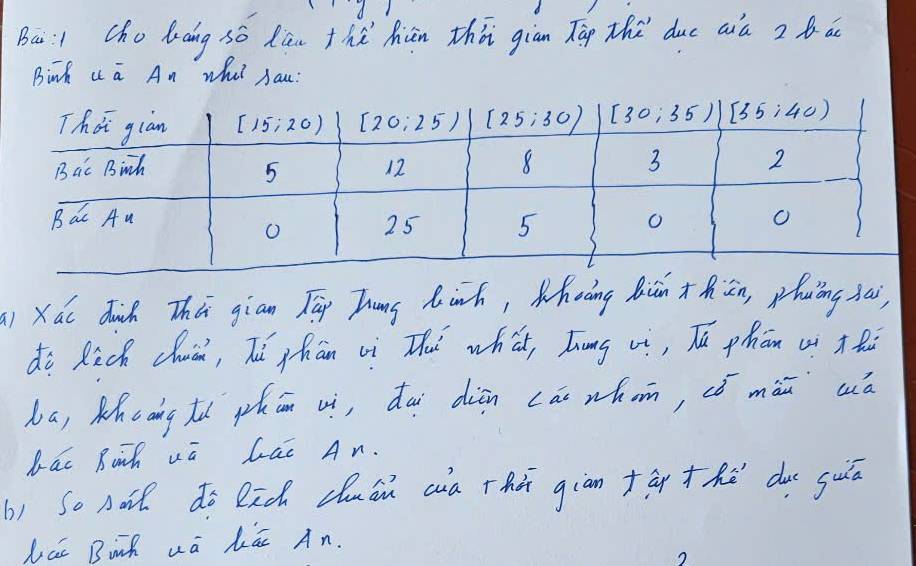 Bài:1 Cho bảng số liệu thể hiện thời gian tập thể dục của 2 bác
Bình và An như sau:
Thời gian [15;20) [20;25) [25;30) [30;35) [35;40)
Bác Bình 5 12 8 3 2
Bác An 0 25 5 0 0
a) Xác định thời gian tập trung bình, khoảng biến thiên, phương sai,
độ lệch chuẩn, tứ phân vị thứ nhất, trung vị, tứ phân vị thứ
ba, khoảng tứ phân vị, đại diện các nhóm, cỡ mẫu của
bác Bình và bác An.
b) So sánh độ lệch chuẩn của thời gian tập thể dục giữa
bác Bình và bác An.